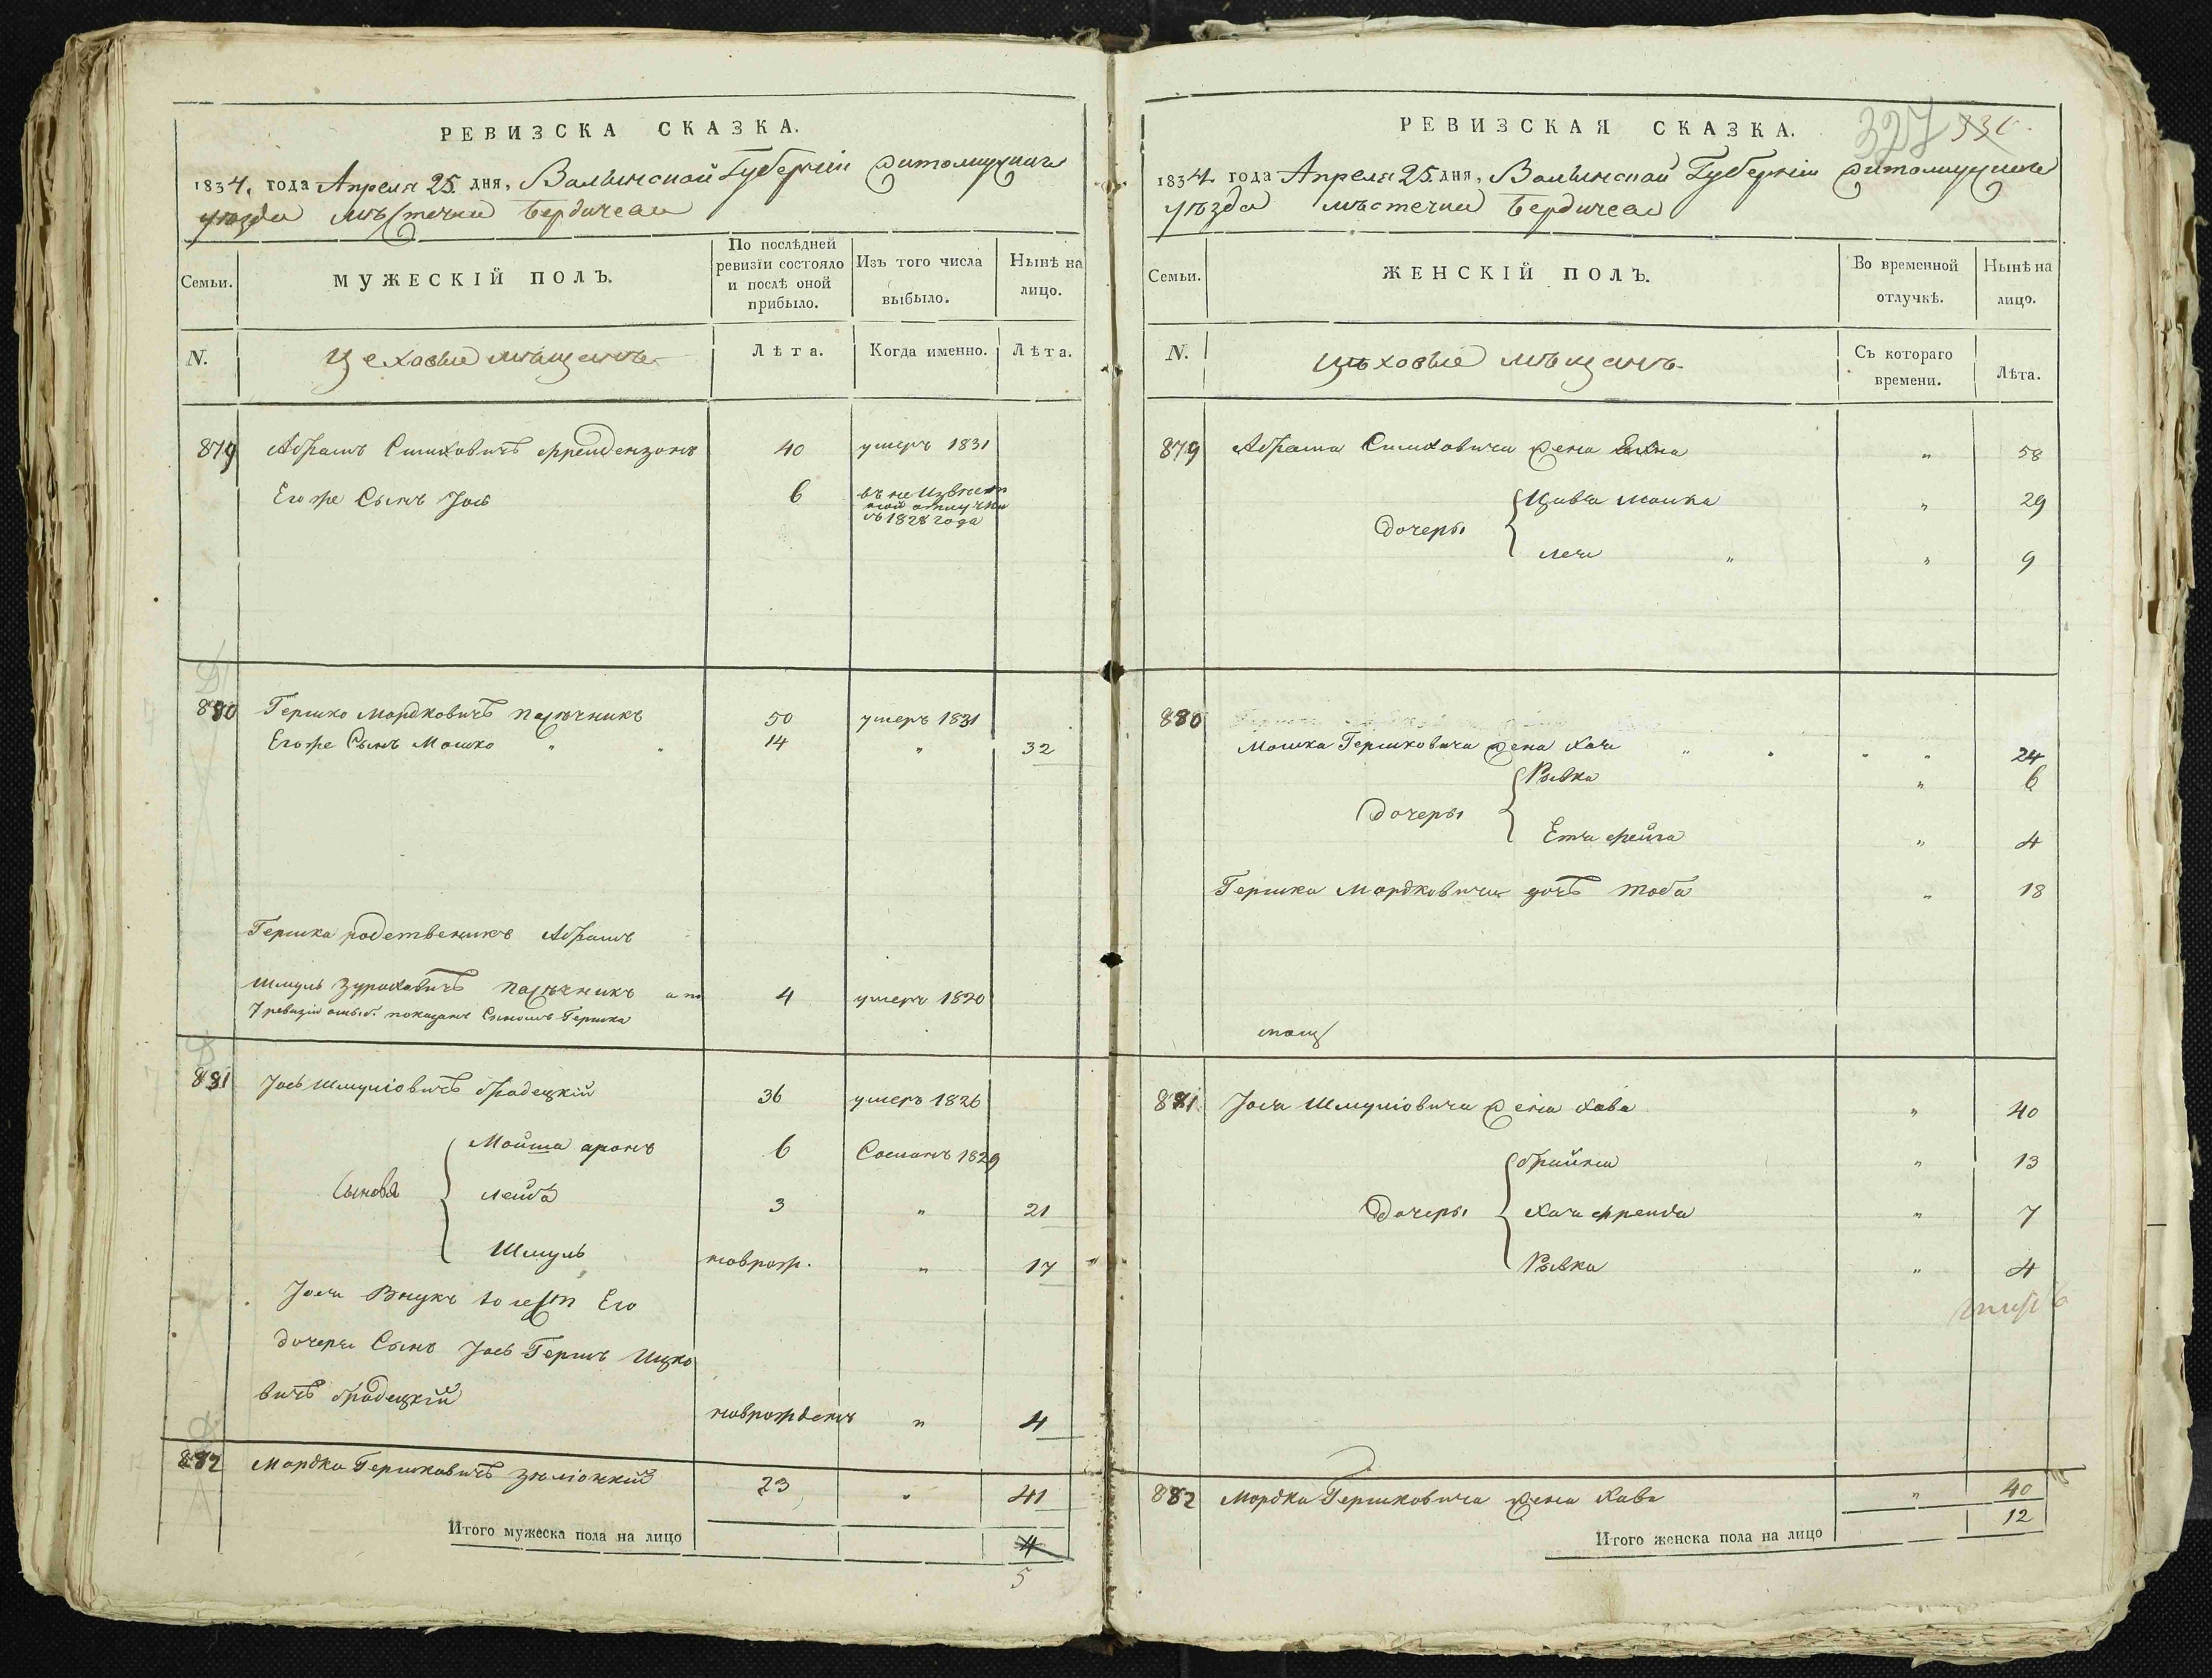 РЕВИЗСКА СКАЗКА.
1834. года Апреля 25. дня, Волынской Губернiи Житомирскаго
уѣзда мѣстечка Бердичева
Семьи.
МУЖЕСКIЙ ПОЛЪ.
По послѣдней
ревизiи состояло
и послѣ оной
прибыло.
Изъ того числа
выбыло.
Нынѣ на
лицо.
N.
Цеховые мѣщанъ
Лѣта.
Когда именно.
Лѣта.
879 Абрамъ Симховичъ 40 умеръ 1831
Его же Сынъ Iось 6 въ не извѣст
ной отлучки
съ 1828 года
880 Гершко Мордковичъ пасѣчникъ 50 умеръ 1831
Его же Сынъ Мошко " " 14 " 32
Гершка родственикъ Абрамъ
Шмуль Зуроховичъ пасѣчникъ а по 4 умеръ 1820
7 ревизiи ошыб. показанъ Сыномъ Гершка
881 Iось Шмулiовичъ бродецкiй 36 умеръ 1826
Сыновя
Мойша аронъ 6 Сосланъ 1829
Лейба 3 " 21
Шмуль новрож. " 17
Iося Внукъ то есть Его
дочеры Сынъ Iось Гершъ Ицко
вичъ бродецкiй новрожденъ " 4
882 Мордко Гершковичъ 23 " 41
Итого мужеска пола на лицо 4
5
РЕВИЗСКАЯ СКАЗКА.
327
1834 года Апреля 25. дня, Волынской Губернiи Житомирскаго
уѣзда мѣстечка Бердичева
Семьи.
ЖЕНСКIЙ ПОЛЪ.
Во временной
отлучкѣ.
Нынѣ на
лицо.
N.
Цѣховые мѣщанъ
Съ котораго
времени.
Лѣта.
879 Абрама Симховича жена " 58
Дочеры
Цивя Малка " 29
Лея " " 9
880
Мошка Гершковича жена Хая " " " " 24
Дочеры
Рывка " 6
Етя фейга " 4
Гершка Мордковича дочь Тоба " 18
881 Iося Шмулiовича жена Хава " 40
Дочеры
брайна " 13
Хая френда " 7
Рывка " 4
882 Мордка Гершковича жена Хава " 40
Итого женска пола на лицо 12